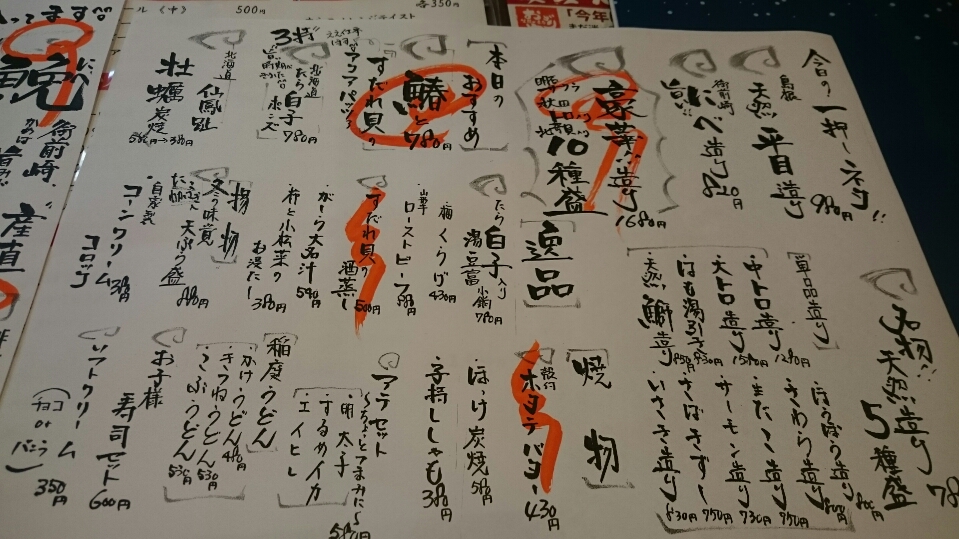 今日の一押しネタ!!
980円
島根
天然 平目 造り
御前崎
旨い!! にべ造り 820円
豪華!!造り
10種盛
1680円
本日の
おすすめ
鰆と
すだれ貝の
780円
北海道
たら白子
ポン酢
780円
北海道
仙鳳趾
牡蠣炭焼
逸品
・たら白子入り
湯豆腐 小鍋 780円
・梅くらげ 430円
・ローストビーフ
・すだれ貝の
酒蒸し 500円
・がーら大名汁 540円
・竹と小松菜の
お浸し 380円
揚物
・冬の味覚
天ぷら盛 880円
・自家製
コーンクリーム
コロッケ 380円
名物!! 天然造り
5種盛
単品造り
・中トロ造り 1280円
・大トロ造り 1580円
・はも湯引き 930円
・天然鰤造り 850円
・ほうぼう造り 800円
・さわら造り 800円
・まだこ造り 750円
・サーモン造り 730円
・さばきずし 750円
・いさき造り 830円
焼物
・殻付
ホタテバター 430円
・ほっけ炭焼 580円
・子持ししゃも 380円
アテセット
〜ちょっとつまみに〜
・明太子
・するめイカ
・エイヒレ
580円
稲庭うどん
・かけうどん 480円
・きつねうどん 530円
・こぶうどん 530円
お子様
・寿司セット 600円
・ソフトクリーム
(チョコ or バニラ) 350円
ル(中) 500円
各350円
「今年
にべ
鮸
御前崎
産直